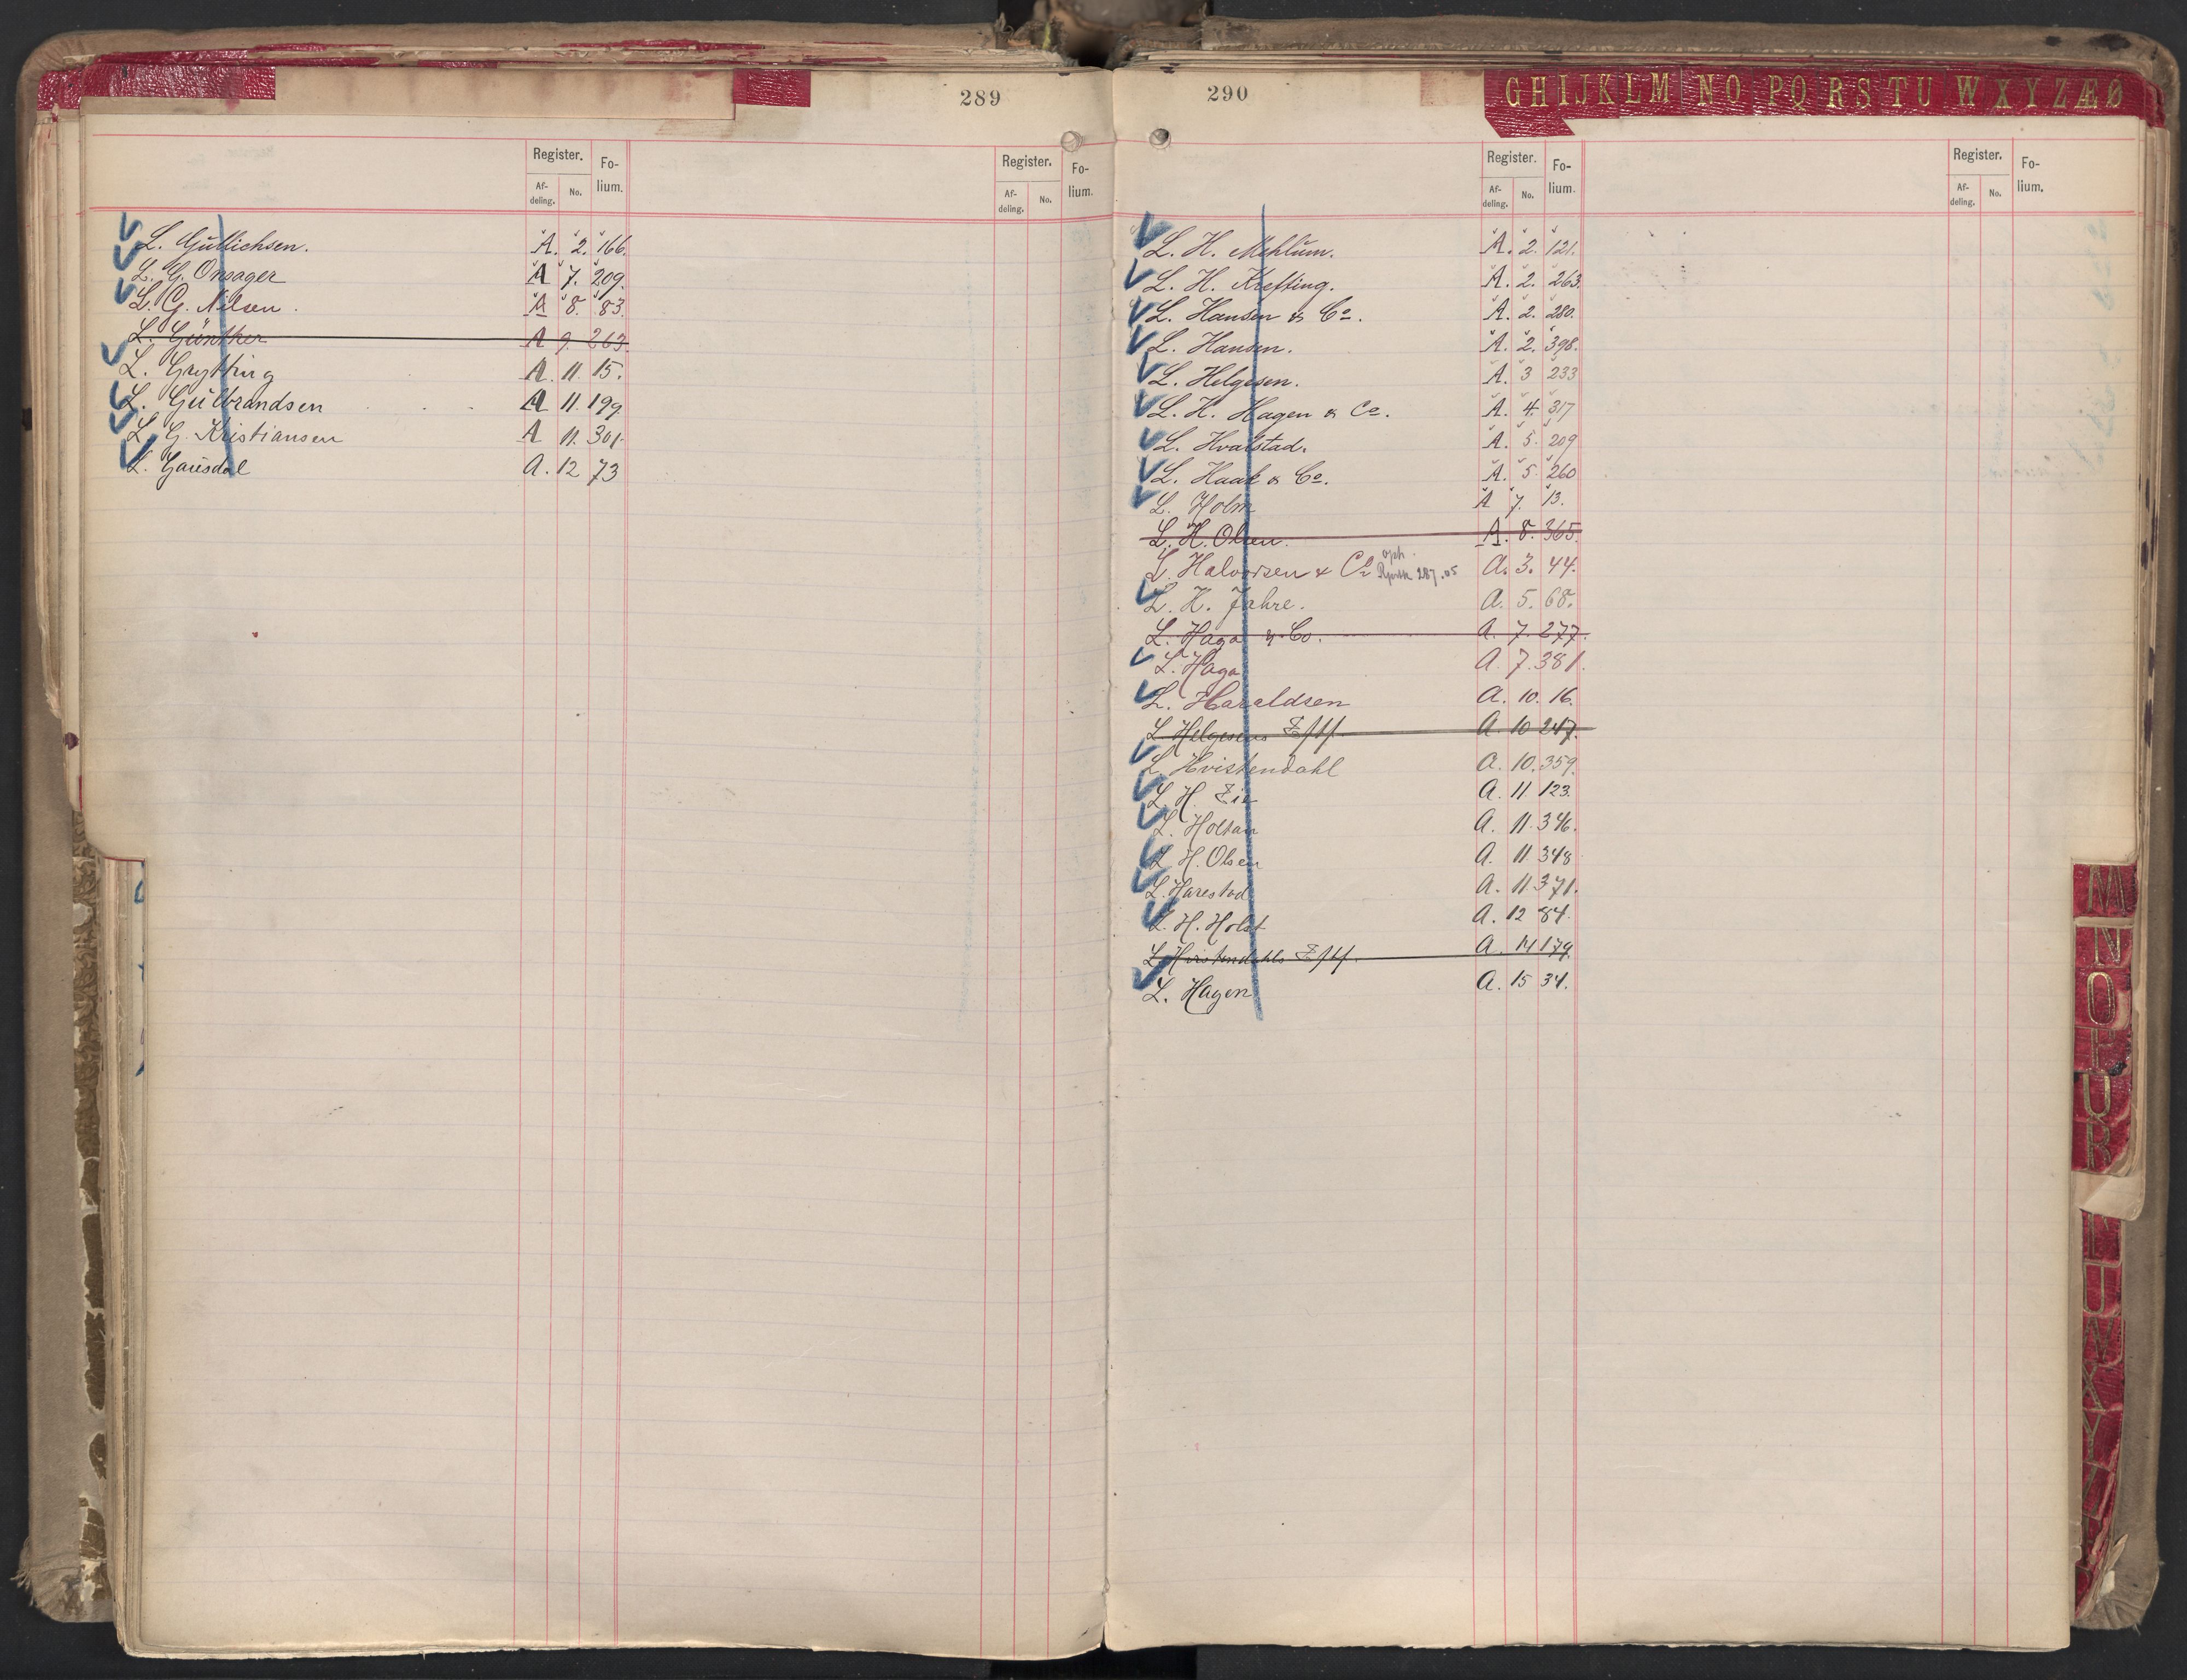 289
Register. Fo-lium. Register. Fo-lium.
Af-deling. No. Af-deling. No.
L. Gullichsen. A. 2. 166.
L. G. Onsager A 7. 209.
L. G. Nilsen. A 8. 83.
L. Günther A 9. 263.
L. Grytting A. 11. 15.
L. Gulbrandsen A 11. 199.
L. G. Kristiansen A 11. 301.
L. Gausdal A. 12 73
290
G H I J K L M N O P Q R S T U W X Y Z Æ Ø
Register. Fo-lium. Register. Fo-lium.
Af-deling. No. Af-deling. No.
L. H. Mehlum. A. 2. 121.
L. H. Krefting. A. 2. 263.
L. Hansen & Co. A. 2. 280.
L. Hansen. A. 2. 398.
L. Helgesen. A. 3 233
L. H. Hagen & Co. A. 4. 317
L. Hvalstad. A. 5. 209
L. Haak & Co. A. 5. 260
L. Holm A 7. 13.
L. H. Olsen. A. 8. 365.
oph.
L. Halvorsen & Co 287.05 A. 3. 44.
L. H. Jahre. A. 5. 68.
L. Haga & Co. A. 7. 277.
L. Haga A. 7. 381.
L. Haraldsen A. 10. 16.
L. Helgesens Eftf. A. 10 247.
L. Hvistendahl A. 10. 359.
L. H. Lie A. 11 123.
L. Holtan A. 11. 346.
L. H. Olsen A. 11 348
L. Harestad A. 11. 371.
L. H. Holst A. 12 84.
L. Hvistendahls Eftf. A. 14 179.
L. Hagen A. 15 34.
M
N
O
P
Q
R
T
U
W
X
Y
Z